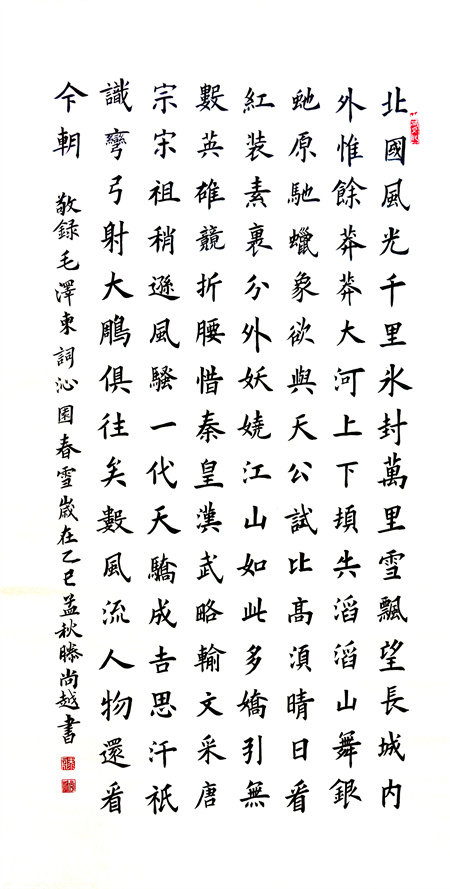 北國風光千里氷封萬里雪飄望長城内
外惟餘莽莽大河上下頓失滔滔山舞銀
虵原馳蠟象欲與天公試比高湏晴日看
紅装素裹分外妖嬈江山如此多嬌引無
數英雄競折腰惜秦皇漢武略輸文采唐
宗宋祖稍遜風騷一代天驕成吉思汗祇
識彎弓射大鵰俱往矣數風流人物還看
今朝 敬録毛澤東詞沁園春雪歲在乙巳孟秋滕尚越書